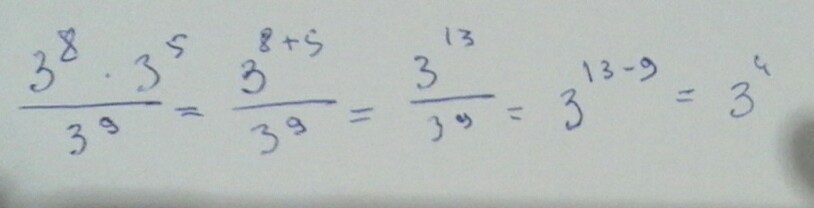 \frac{3^8 \cdot 3^5}{3^9} = \frac{3^{8+5}}{3^9} = \frac{3^{13}}{3^9} = 3^{13-9} = 3^4